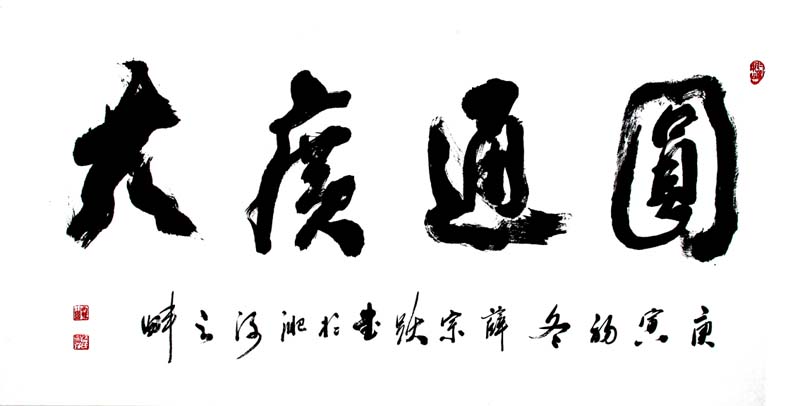 圓通廣大
庚寅初冬薛宗跃書於淝河之畔